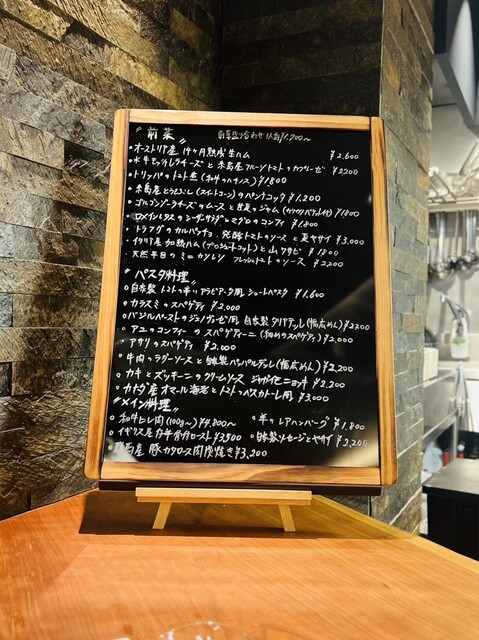 "前菜" 前菜盛り合わせ 1人前¥1,700〜
・オーストリア産 19ヶ月熟成生ハム ¥2,600
・水牛モッツァレラチーズと 糸島産フルーツトマトのカプレーゼ ¥2200
・トリッパのトマト煮 (和牛のハチノス) ¥1800
・糸島産とうもろこし(スイートコーン)のパンナコッタ ¥1,200
・ゴルゴンゾーラチーズのムースと 自家のジャム ¥1800
・ロメインレタスのシーザーサラダとマグロのコンフィ ¥1,800
・トラフグのカルパッチョ 発酵トマトのソースと 夏ヤサイ ¥3,000
・イタリア産 加熱ハム(プロシュートコット)と 山ワサビ ¥1800
・天然平目の フレッシュトマトのソース ¥2,200
"パスタ料理"
・自家製 トマトの アラビアータ風 ショートパスタ ¥1,600
・カラスミのスパゲティ ¥2,000
・バジルペーストのジェノヴェーゼ風 自家製タリアテッレ(幅広めん)¥2200
・アユのコンフィーの スパゲティーニ(細めのスパゲティ) ¥2,000
・アサリのスパゲティ ¥2,000
・牛肉のラグーソースと 自家製パッパルデッレ(幅広めん) ¥2,200
・カキとズッキーニのクリームソース ジャガイモニョッキ ¥2,200
・カナダ産オマール海老とトマトのペスカトーレ風 ¥3,000
"メイン料理"
・和牛ヒレ肉(100g〜)¥4,800〜 ・羊のレアハンバーグ ¥1,800
・イギリス産 仔羊骨付ロースト¥3,800 ・自家製ソーセージとヤサイ ¥2,200
産 豚カタロース肉炭焼き¥3,200